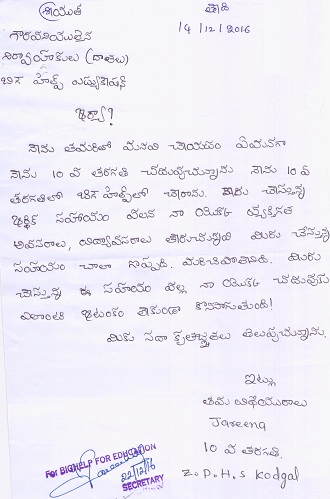 శ్రీయుత తేది
14/12/2016
గౌరవనియులైన
నిర్వాహకులు (దాతలు)
బిగ్ హెల్ప్ ఎడ్యుకేషన్
ఆర్యా!
నేను తమరితో మనవి చేయునది ఏమనగా
నేను 10 వ తరగతి చదువుచున్నాను నేను 10 వ
తరగతిలో బిగ్ హెల్ప్‌లో చేరాను. మీరు చేస్తున్న
ఆర్థిక సహాయం వలన నా యొక్క వ్యక్తిగత
అవసరాలు, విద్యావసరాలు తీరుచున్నవి మీరు చేస్తున్న
సహాయం చాలా గొప్పది. మరిచిపోలేనిది. మీరు
చేస్తున్న ఈ సహాయం వల్ల నా యొక్క చదువుకు
ఎలాంటి ఆటంకం లేకుండా కొనసాగుతుంది!
మీకు సదా కృతజ్ఞతలు తెలుపుచున్నాను.
ఇట్లు
తమ విధేయురాలు
Jareena
10 వ తరగతి.
Z.P.H.S Kodgal
For BIGHELP FOR EDUCATION
22/12/16
SECRETARY